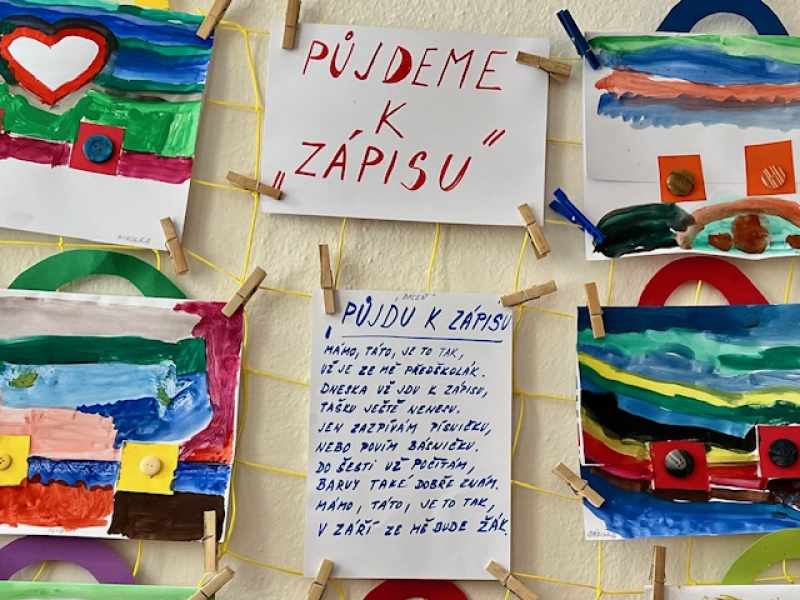 PŮJDEME
K
„ZÁPISU"
„BÁSEŇ"
„PŮJDU K ZÁPISU
MÁMO, TÁTO, JE TO TAK,
UŽ JE ZE MĚ PŘEDŠKOLÁK.
DNESKA UŽ JDU K ZÁPISU,
TAŠKU JEŠTĚ NENESU.
JEN ZAZPÍVÁM PÍSNIČKU,
NEBO POVÍM BÁSNIČKU.
DO ŠESTI UŽ POČÍTÁM,
BARVY TAKÉ DOBŘE ZNÁM.
MÁMO, TÁTO, JE TO TAK,
V ZÁŘÍ ZE MĚ BUDE ŽÁK.